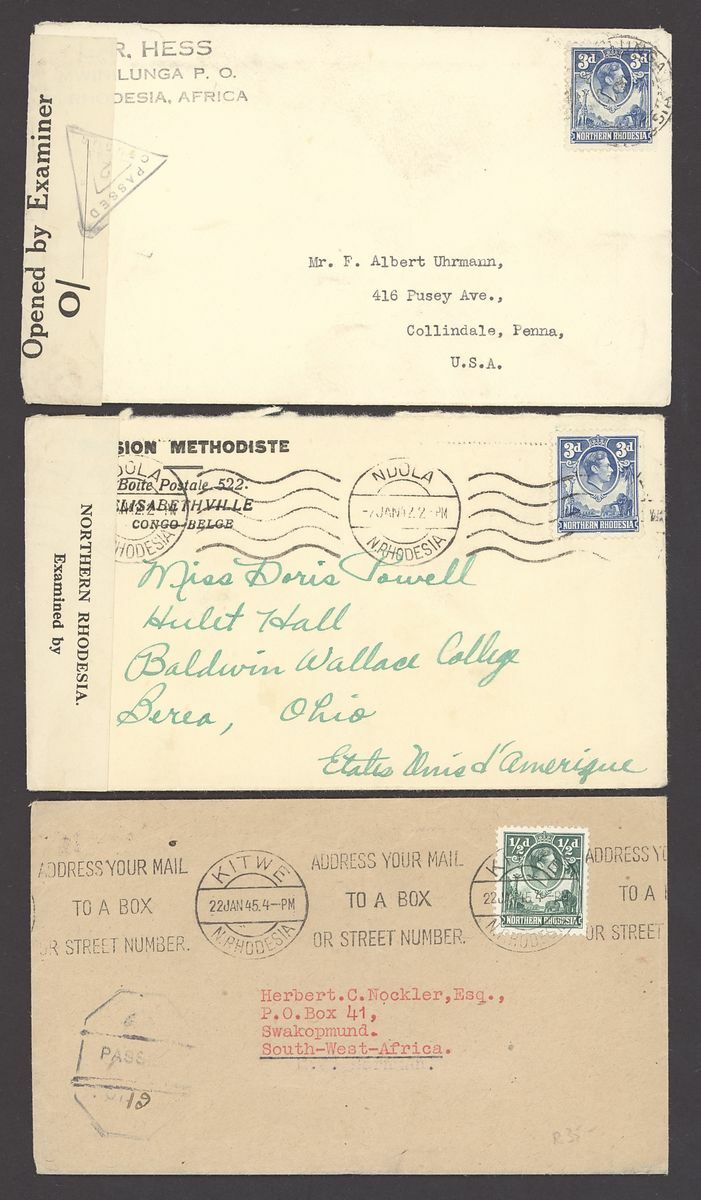 R. HESS
LUNGA P. O.
RHODESIA, AFRICA
Opened by Examiner
10
PASSED
3d 3d
NORTHERN RHODESIA
Mr. F. Albert Uhrmann,
416 Pusey Ave.,
Collindale, Penna,
U.S.A.
SION METHODISTE
Boite Postale 522.
ELISABETHVILLE
CONGO-BELGE
NORTHERN RHODESIA.
Examined by
NDOLA
N.RHODESIA
3d 3d
NORTHERN RHODESIA
Miss Doris Powell
Hulet Hall
Baldwin Wallace College
Berea, Ohio
Etats Unis d'Amerique
ADDRESS YOUR MAIL
TO A BOX
OR STREET NUMBER.
KITWE
22JAN45.4-PM
N.RHODESIA
ADDRESS YOUR MAIL
TO A BOX
OR STREET NUMBER.
½d ½d
NORTHERN RHODESIA
ADDRESS YO
TO A
OR STREET
Herbert.C.Nockler,Esq.,
P.O.Box 41,
Swakopmund.
South-West-Africa.
PASS
R35-